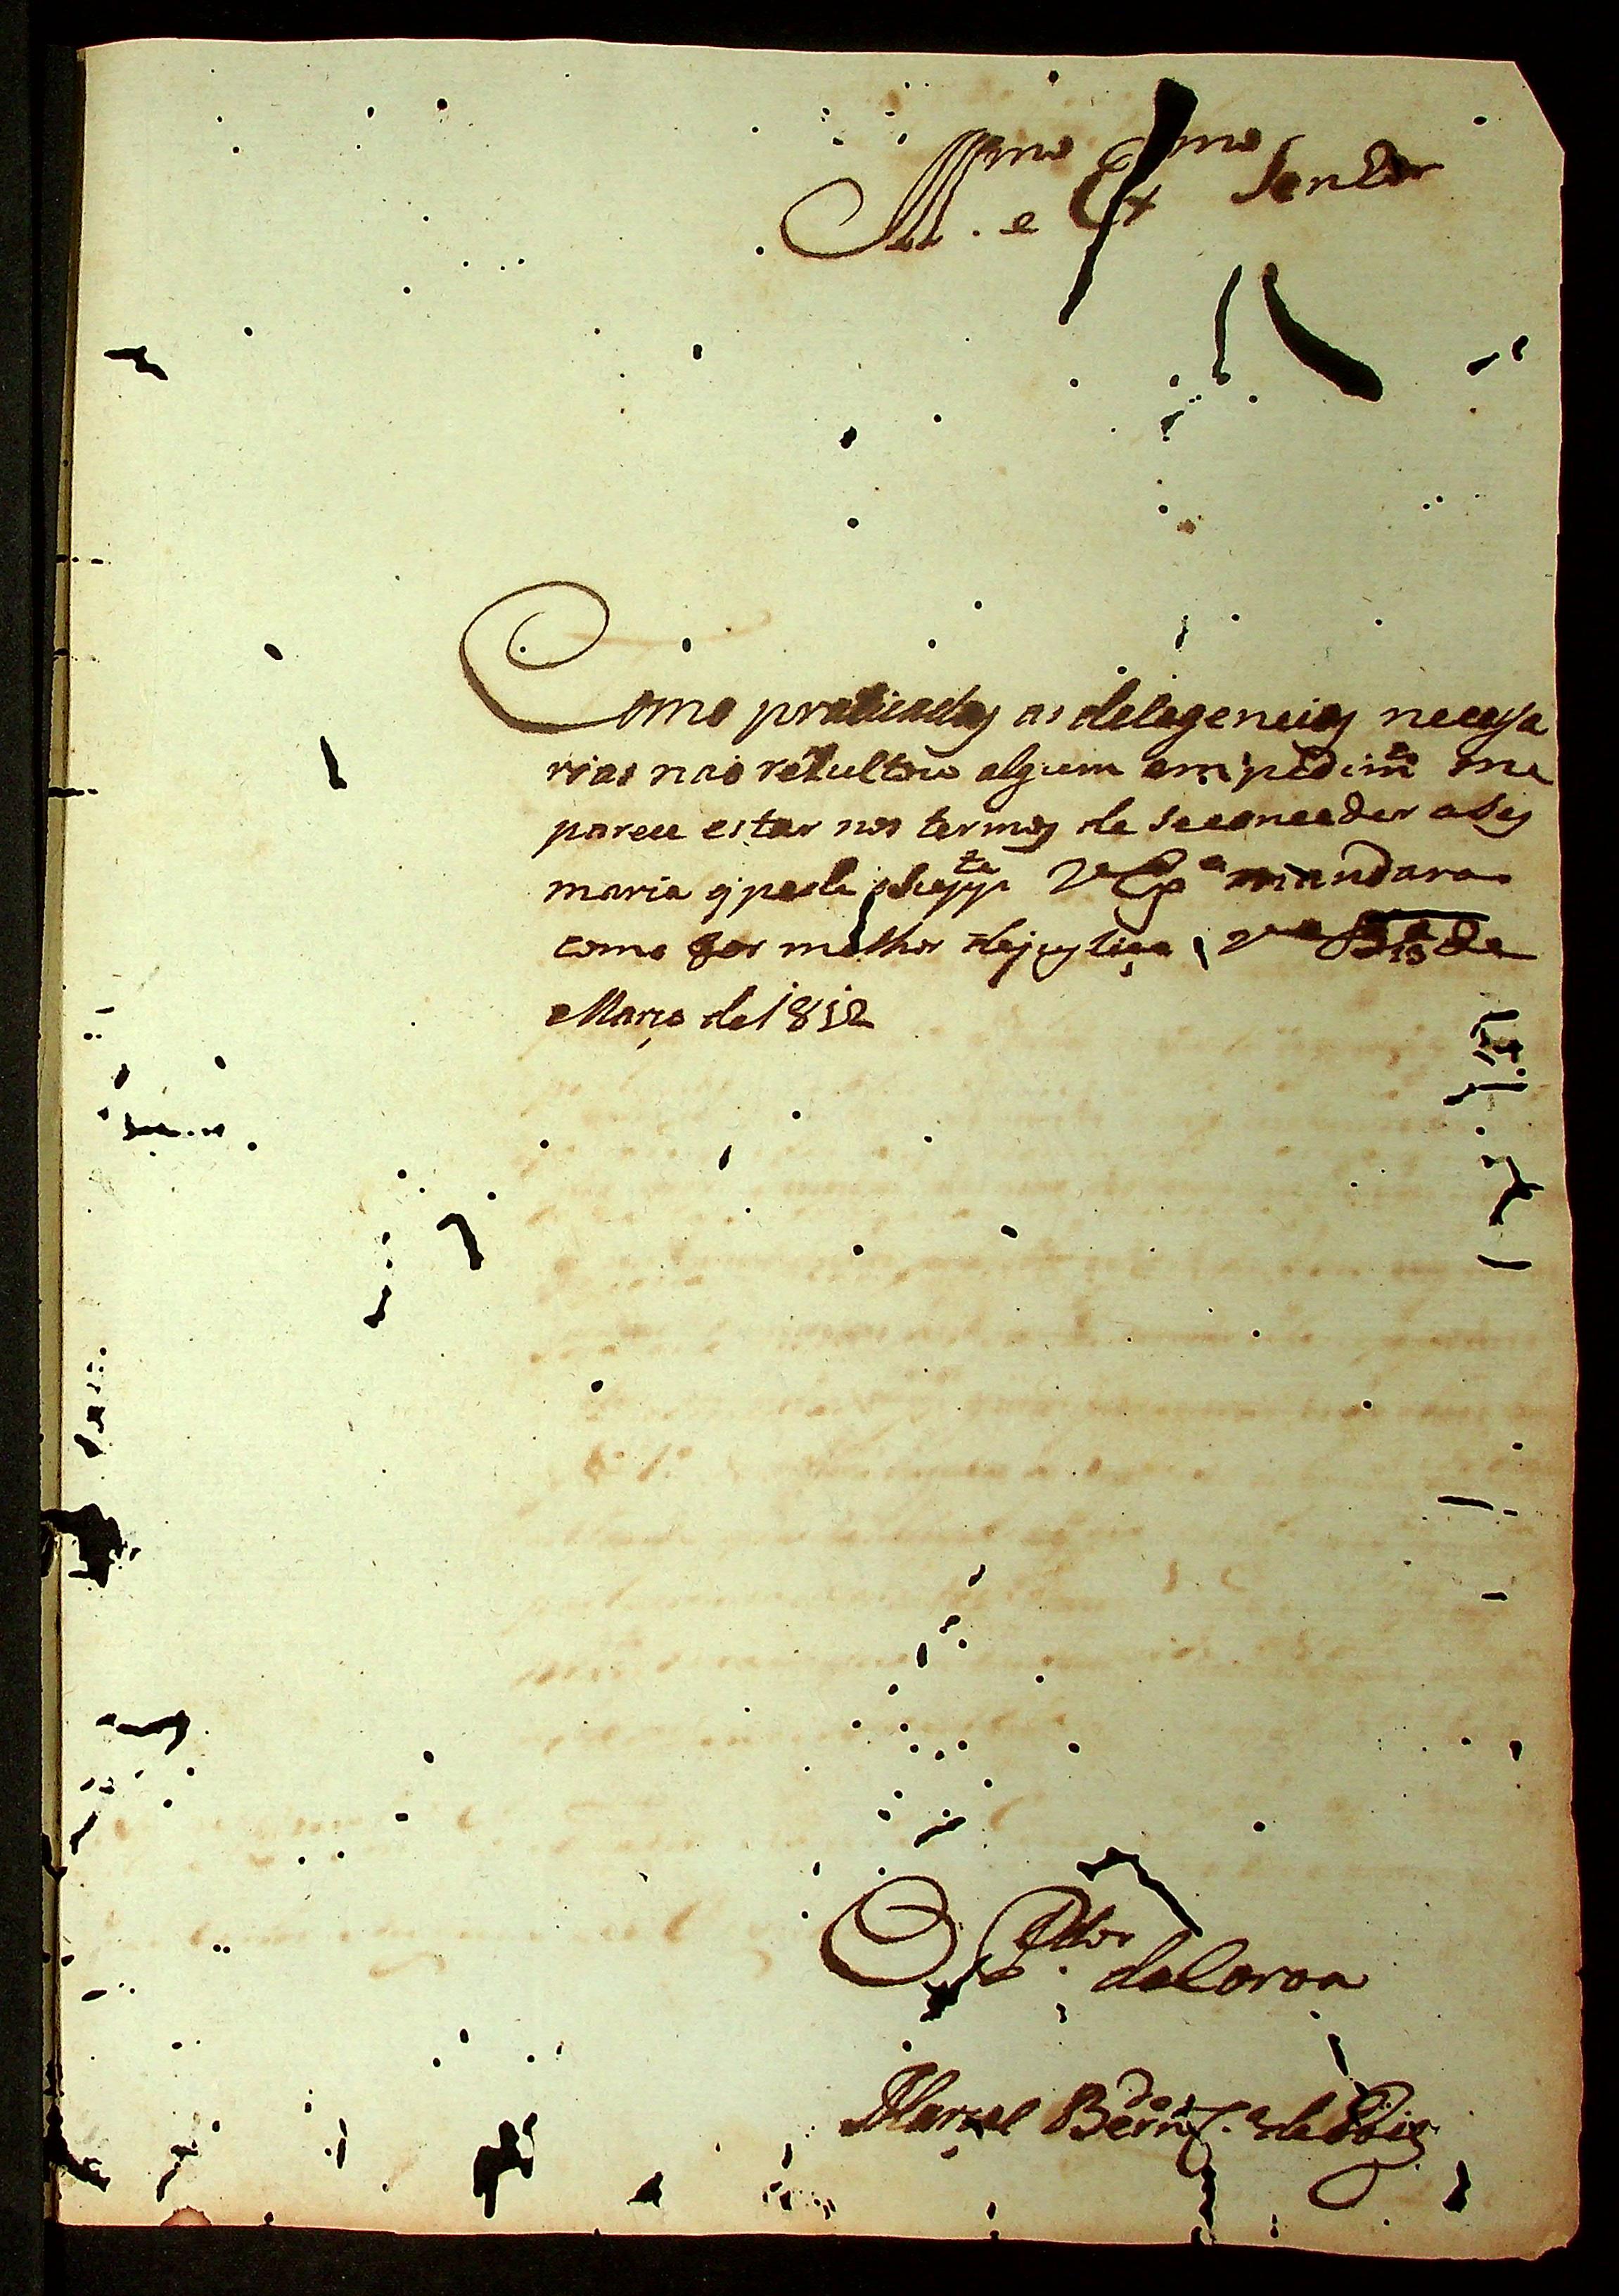 Illmo. e Exmo Senhor
Como praticadas as delegencias necessa
rias naõ rezultou algum empedimto me
parece estar nos termos de se conceder a Ses
maria q pede o suppte VExa mandara
como for melhor de justiça, 13 de
Março de 1812
O Pdor. da Coroa
Marcel Berndo